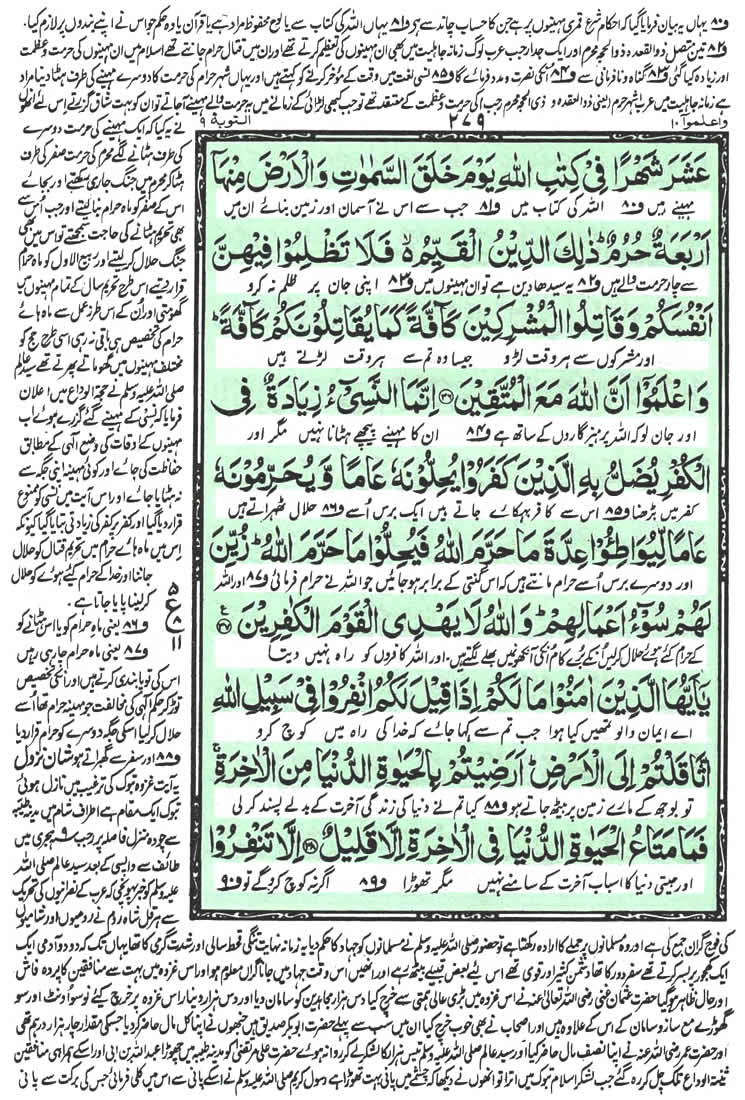 ف۸۰ یہاں یہ بیان فرمایا گیا کہ احکام شرع قمری مہینوں پر ہے جن کا حساب چاند سے ہے ف۸۱ یہاں اللہ کی کتاب سے یا لوح محفوظ مراد ہے یا قرآن یا وہ حکم جو اس نے اپنے بندوں پر لازم کیا۔
ف۸۲ تین متصل ذوالقعدہ ذوالحجہ محرم اور ایک جدا رجب عرب لوگ زمانہ جاہلیت میں بھی ان مہینوں کی تعظیم کرتے تھے اور ان میں قتال حرام جانتے تھے اسلام میں ان مہینوں کی حرمت و عظمت
اور زیادہ کی گئی ف۸۳ گناہ و نافرمانی سے ف۸۴ انکی نصرت و مدد فرمائے گا ف۸۵ نسی لغت میں وقت کے مؤخر کرنے کو کہتے ہیں اور یہاں شہر حرام کی حرمت کا دوسرے مہینے کی طرف ہٹا دینا مراد
ہے زمانہ جاہلیت میں عرب اشہر حرم (یعنی ذوالقعدہ و ذی الحجہ محرم رجب) کی حرمت و عظمت کے معتقد تھے تو جب کبھی لڑائی کے زمانے میں یہ حرمت والے مہینے آجاتے تو ان کو بہت شاق گزرتے اس لئے انھوں
واعلموا ۱۰
۲۷۹
التوبة ۹
عَشَرَ شَهْرًا فِیْ كِتٰبِ اللّٰهِ یَوْمَ خَلَقَ السَّمٰوٰتِ وَالْاَرْضَ مِنْهَاۤ
مہینے ہیں ف۸۰ اللہ کی کتاب میں ف۸۱ جب سے اس نے آسمان اور زمین بنائے ان میں
اَرْبَعَةٌ حُرُمٌ ؕ ذٰلِكَ الدِّیْنُ الْقَیِّمُ ۙ۬ فَلَا تَظْلِمُوْا فِیْهِنَّ
سے چار حرمت والے ہیں ف۸۲ یہ سیدھا دین ہے تو ان مہینوں میں ف۸۳ اپنی جان پر ظلم نہ کرو
اَنْفُسَكُمْ وَقَاتِلُوا الْمُشْرِكِیْنَ كَآفَّةً كَمَا یُقَاتِلُوْنَكُمْ كَآفَّةً ؕ
اور مشرکوں سے ہر وقت لڑو جیسا وہ تم سے ہر وقت لڑتے ہیں
وَاعْلَمُوْۤا اَنَّ اللّٰهَ مَعَ الْمُتَّقِیْنَ ﴿۳۶﴾ اِنَّمَا النَّسِیْٓءُ زِیَادَةٌ فِی
اور جان لو کہ اللہ پرہیزگاروں کے ساتھ ہے ف۸۴ ان کا مہینے پیچھے ہٹانا نہیں مگر اور
الْكُفْرِ یُضَلُّ بِهِ الَّذِیْنَ كَفَرُوْا یُحِلُّوْنَهٗ عَامًا وَّیُحَرِّمُوْنَهٗ
کفر میں بڑھنا ف۸۵ اس سے کافر بہکائے جاتے ہیں ایک برس اُسے ف۸۶ حلال ٹھہراتے ہیں
عَامًا لِّیُوَاطِـُٔوْا عِدَّةَ مَا حَرَّمَ اللّٰهُ فَیُحِلُّوْا مَا حَرَّمَ اللّٰهُ ؕ زُیِّنَ
اور دوسرے برس اُسے حرام مانتے ہیں کہ اس گنتی کے برابر ہوجائیں جو اللہ نے حرام فرمائی ف۸۷ اور اللہ
لَهُمْ سُوْٓءُ اَعْمَالِهِمْ ؕ وَاللّٰهُ لَا یَهْدِی الْقَوْمَ الْكٰفِرِیْنَ ﴿۳۷﴾
کے حرام کئے ہوئے حلال کرلیں ان کے بُرے کام انکی آنکھوں میں بھلے لگتے ہیں۔ اور اللہ کافروں کو راہ نہیں دیتا
یٰۤاَیُّهَا الَّذِیْنَ اٰمَنُوْا مَا لَكُمْ اِذَا قِیْلَ لَكُمُ انْفِرُوْا فِیْ سَبِیْلِ اللّٰهِ
اے ایمان والو تمھیں کیا ہوا جب تم سے کہا جائے کہ خدا کی راہ میں کوچ کرو
اثَّاقَلْتُمْ اِلَی الْاَرْضِ ؕ اَرَضِیْتُمْ بِالْحَیٰوةِ الدُّنْیَا مِنَ الْاٰخِرَةِ ۚ
تو بوجھ کے مارے زمین پر بیٹھ جاتے ہو ف۸۸ کیا تم نے دنیا کی زندگی آخرت کے بدلے پسند کرلی
فَمَا مَتَاعُ الْحَیٰوةِ الدُّنْیَا فِی الْاٰخِرَةِ اِلَّا قَلِیْلٌ ﴿۳۸﴾ اِلَّا تَنْفِرُوْا
اور جیتی دنیا کا اسباب آخرت کے سامنے نہیں مگر تھوڑا ف۸۹ اگر نہ کوچ کرو گے تو ف۹۰
نے یہ کیا کہ ایک مہینے کی حرمت دوسرے
کی طرف ہٹانے لگے محرم کی حرمت صفر کی طرف
ہٹا کر محرم میں جنگ جاری رکھتے اور بجائے
اس کے صفر کو ماہ حرام بنا لیتے اور جب اُس سے
بھی تحریم ہٹانے کی حاجت سمجھتے تو اس میں بھی
جنگ حلال کرلیتے اور ربیع الاول کو ماہ حرام
قرار دیتے اس طرح تحریم سال کے تمام مہینوں میں
گھومتی اور اُن کے اس طرز عمل سے ماہ ہائے
حرام کی تخصیص ہی باقی نہ رہی اسی طرح حج کو
مختلف مہینوں میں گھماتے پھرتے تھے سید عالم
صلی اللہ علیہ وسلم نے حجۃ الوداع میں اعلان
فرمایا کہ نسی کے مہینے گئے گزرے ہوئے اب
مہینوں کے اوقات کی وضع الٰہی کے مطابق
حفاظت کی جائے اور کوئی مہینہ اپنی جگہ سے
نہ ہٹایا جائے اور اس آیت میں نسی کو ممنوع
قرار دیا گیا اور کفر پر کفر کی زیادتی بتایا گیا کیونکہ
اس میں ماہ ہائے حرام میں تحریم قتال کو حلال
جاننا اور خدا کے حرام کئے ہوئے کو حلال
کرلینا پایا جاتا ہے۔
ف۸۶ یعنی ماہ حرام کو یا اس ہٹانے کو
ف۸۷ یعنی ماہ حرام چار ہی رہیں
اس کی تو پابندی کرتے ہیں اور انکی تخصیص
توڑ کر حکم الٰہی کی مخالفت جو مہینہ حرام تھا اُسے
حلال کرلیا اسکی جگہ دوسرے کو حرام قرار دیا
ف۸۸ اور سفر سے گھبراتے ہو شان نزول
یہ آیت غزوہ تبوک کی ترغیب میں نازل ہوئی
تبوک ایک مقام ہے اطراف شام میں مدینہ طیبہ
سے چودہ منزل فاصلہ پر رجب ۹ ہجری میں
طائف سے واپسی کے بعد سید عالم صلی اللہ
علیہ وسلم کو خبر پہونچی کہ عرب کے نصرانیوں کی تحریک
سے ہرقل شاہ روم نے رومیوں اور شامیوں
کی فوج گراں جمع کی ہے اور وہ مسلمانوں پر حملے کا ارادہ رکھتا ہے تو حضور صلی اللہ علیہ وسلم نے مسلمانوں کو جہاد کا حکم دیا یہ زمانہ نہایت تنگی قحط سالی اور شدت گرمی کا تھا یہاں تک کہ دو دو آدمی ایک
کھجور پر بسر کرتے تھے سفر دور کا تھا دشمن کثیر اور قوی تھے اس لئے بعض قبیلے بیٹھ رہے اور انھیں اس وقت جہاد میں جانا گراں معلوم ہوا اور اس غزوہ میں بہت سے منافقین کا پردہ فاش
اور حال ظاہر ہوگیا حضرت عثمان غنی رضی اللہ تعالیٰ عنہ نے اس غزوہ میں بڑی عالی ہمتی سے خرچ کیا دس ہزار مجاہدین کو سامان دیا اور دس ہزار دینار اس غزوہ پر خرچ کیے نو سو اونٹ اور سو
گھوڑے مع ساز و سامان کے اس کے علاوہ ہیں اور اصحاب نے بھی خوب خرچ کیا ان میں سب سے پہلے حضرت ابوبکر صدیق ہیں جنھوں نے اپنا کل مال حاضر کردیا جسکی مقدار چار ہزار درہم تھی
اور حضرت عمر رضی اللہ عنہ نے اپنا نصف مال حاضر کیا اور سید عالم صلی اللہ علیہ وسلم تیس ہزار کا لشکر لے کر روانہ ہوئے حضرت علی مرتضیٰ کو مدینہ طیبہ میں چھوڑا عبداللہ بن ابی اور اسکے ہمراہی منافقین
ثنیۃ الوداع تک چل کر رہ گئے جب لشکر اسلام تبوک میں اترا تو انھوں نے دیکھا کہ چشمے میں پانی بہت تھوڑا ہے رسول کریم صلی اللہ علیہ وسلم نے اسکے پانی سے اس میں کلی فرمائی جس کی برکت سے پانی